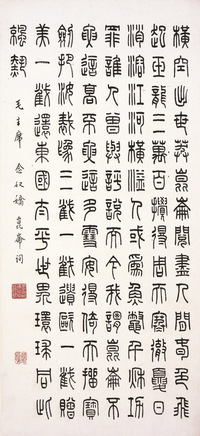 橫空出世莽崑崙閱盡人間春色飛
起玉龍三百萬攪得周天寒徹夏日
消溶江河橫溢人或為魚鱉千秋功
罪誰人曾與評說而今我謂崑崙不
要這高不要這多雪安得倚天抽寶
劍把汝裁為三截一截遺歐一截贈
美一截還東國太平世界環球同此
涼熱
毛主席 念奴嬌 崑崙詞